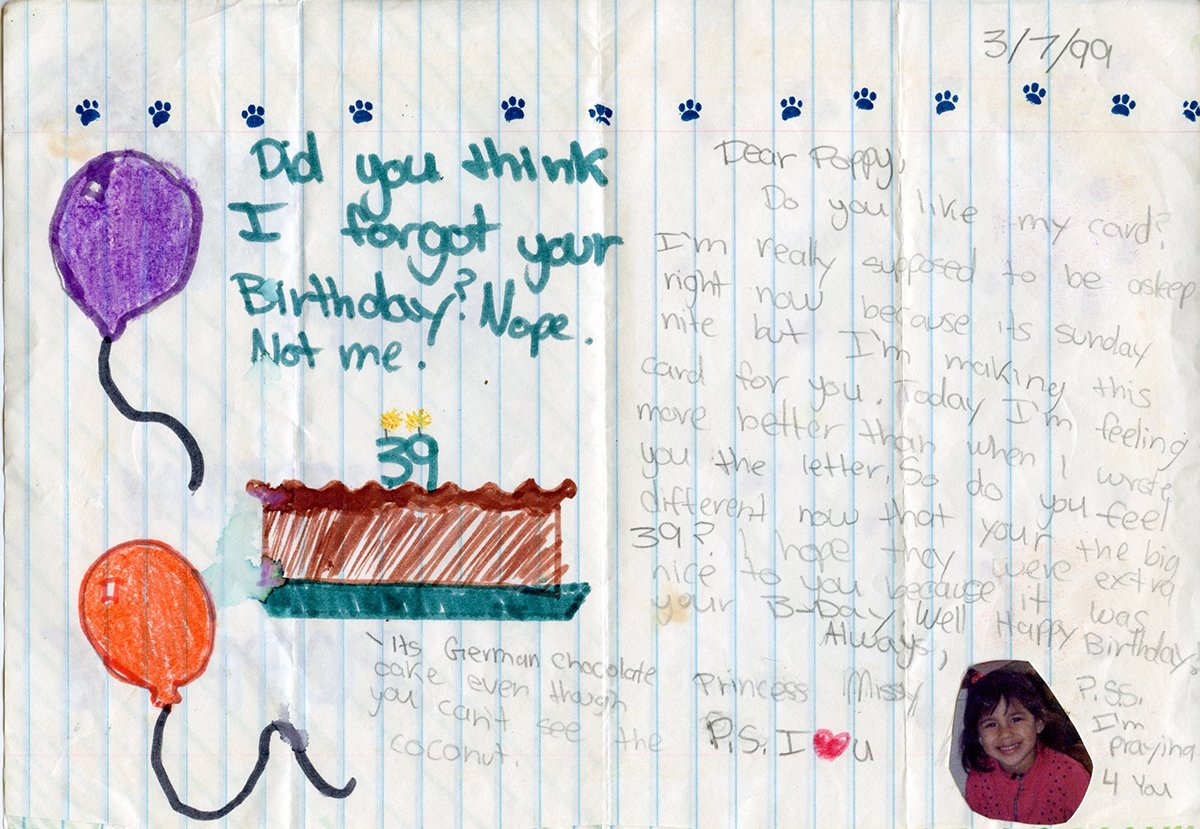 3/7/99
Did you think
I forgot your
Birthday? Nope.
Not me!
39
its German chocolate
cake even though
you can't see the
coconut.
Dear Poppy,
Do you like my card?
I'm really supposed to be asleep
right now because its sunday
nite but I'm making this
card for you. Today I'm feeling
more better than when I wrote
you the letter. So do you feel
different now that your the big
39? I hope they were extra
nice to you because it was
your B-Day. Well Happy Birthday.
Always,
Princess Missy
P.S. I ❤ u
P.S.S.
I'm
praying
4 You